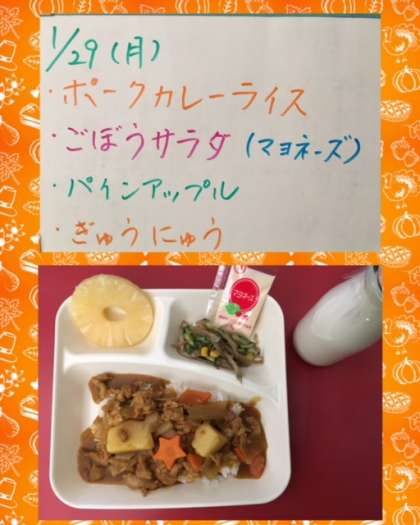 1/29(月)
・ポークカレーライス
・ごぼうサラダ(マヨネーズ)
・パインアップル
・ぎゅうにゅう
マヨネーズ